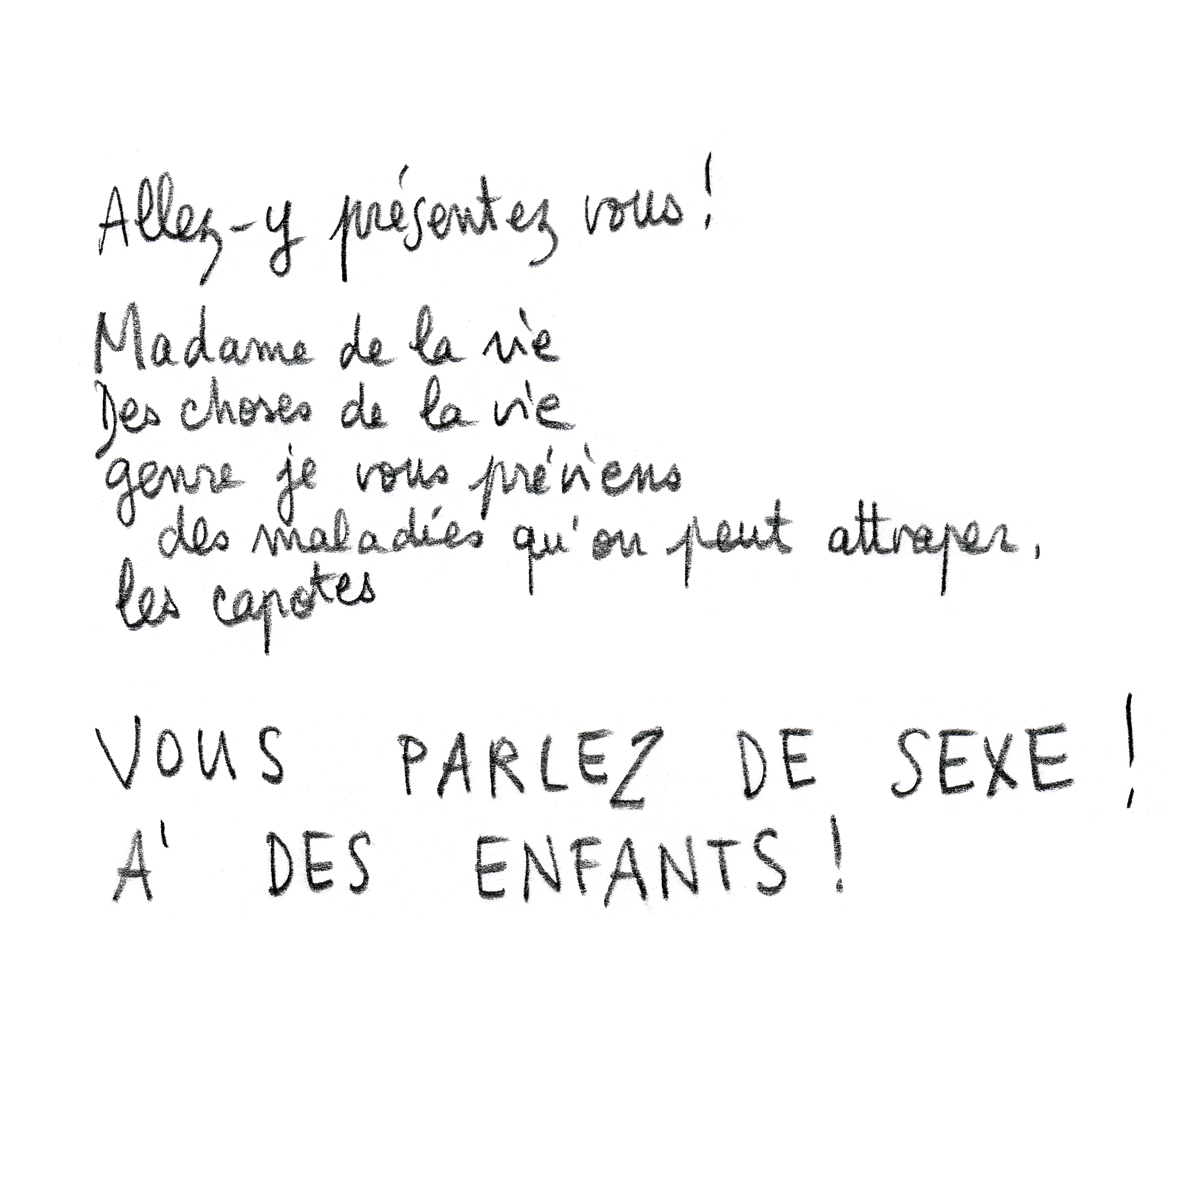 Allez-y présentez vous !
Madame de la vie
Des choses de la vie
genre je vous préviens
des maladies qu'on peut attraper,
les capotes
VOUS PARLEZ DE SEXE !
A' DES ENFANTS !